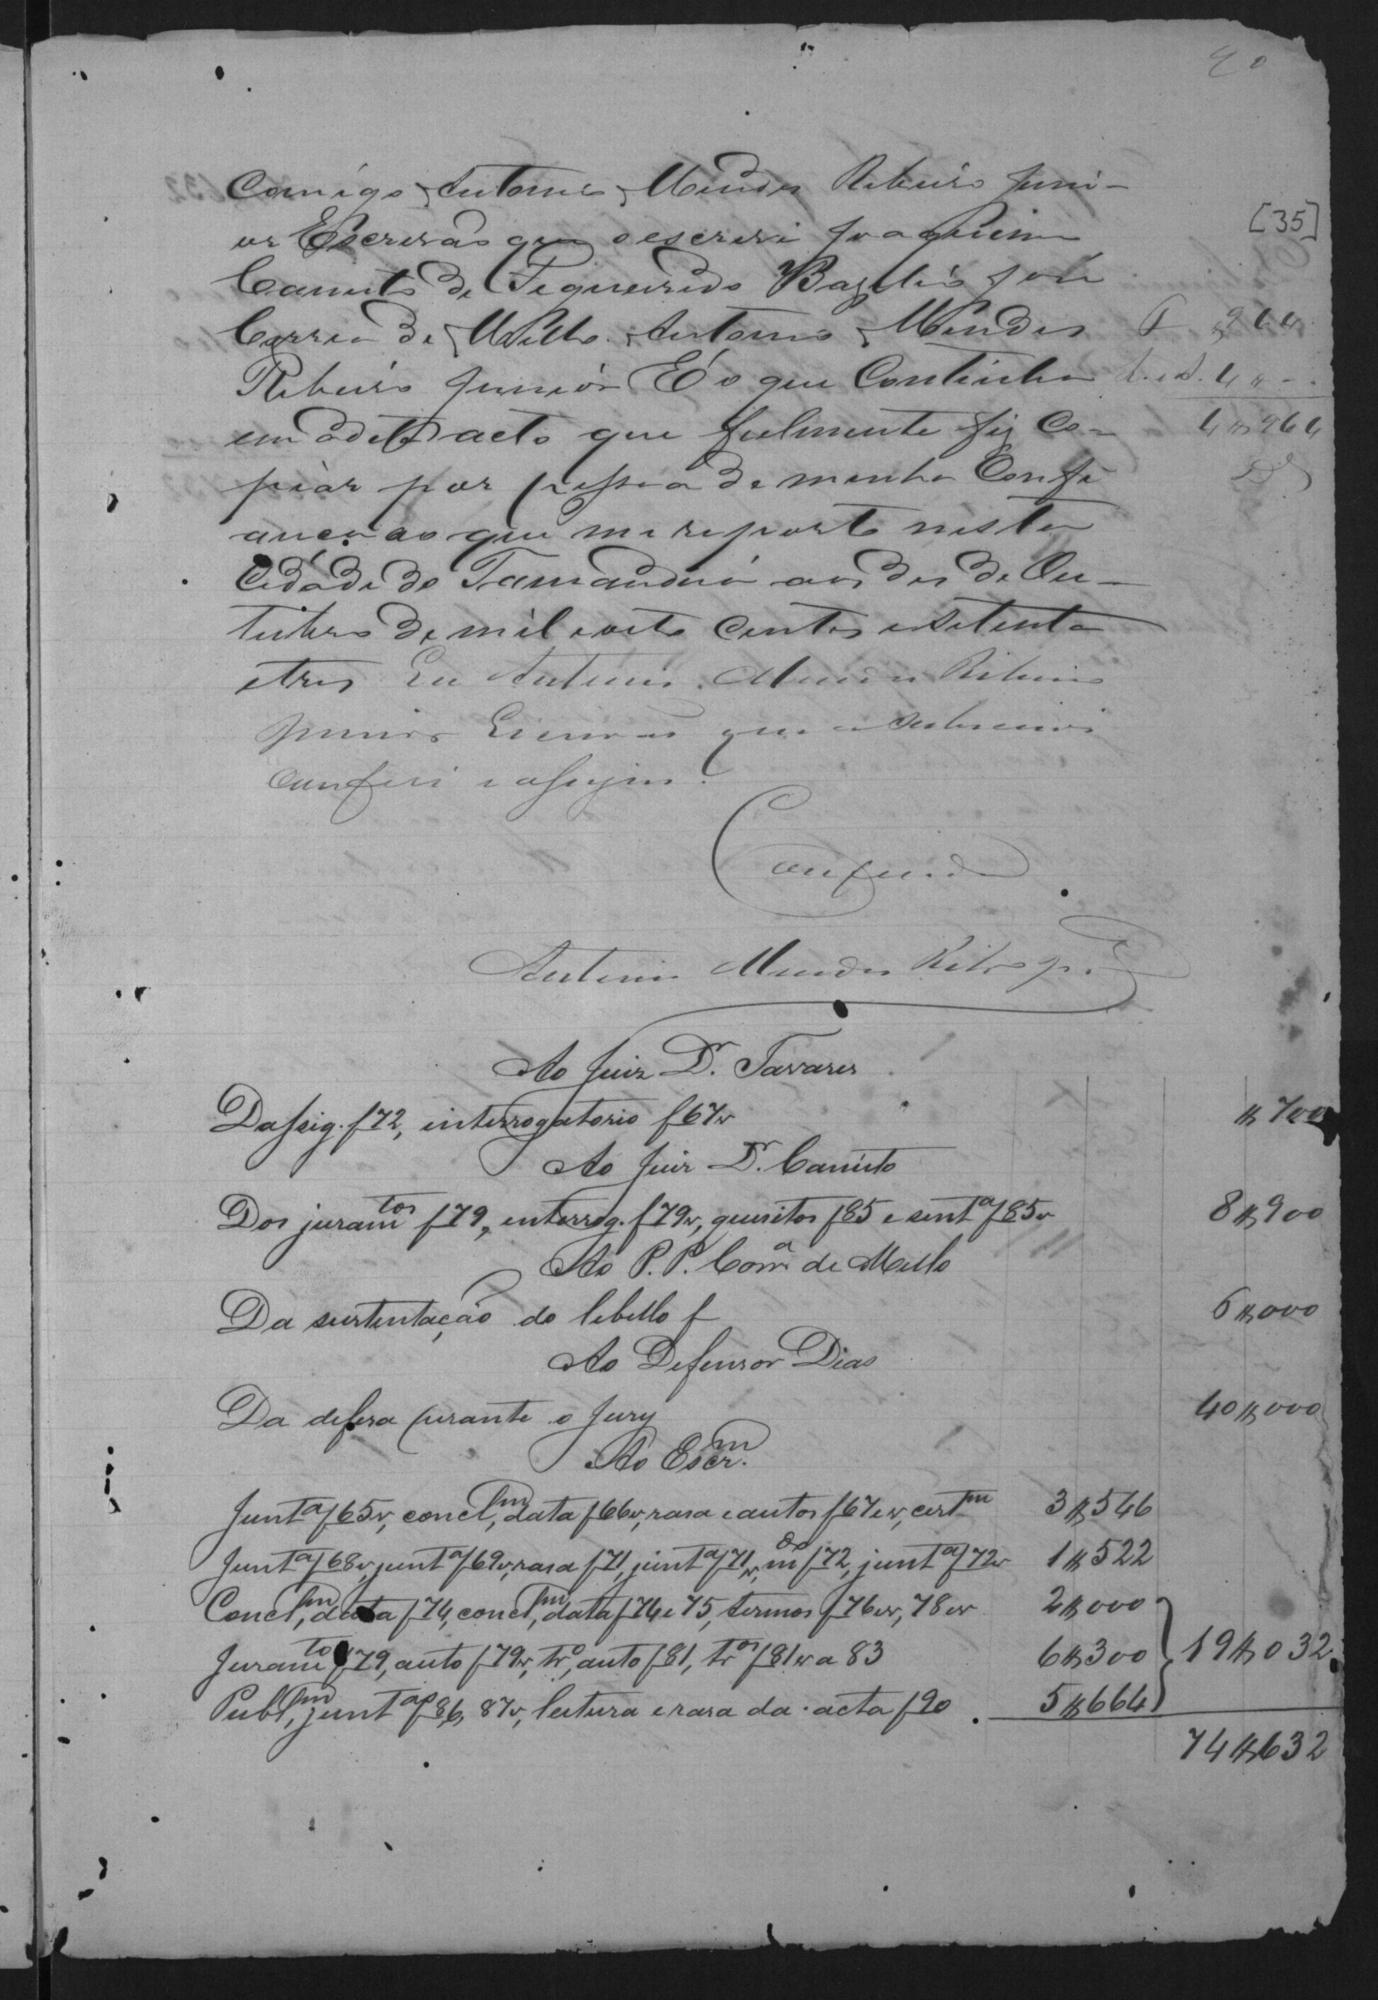 90
[35]
Comigo Antonio Mendes Ribeiro Juni-
or Escrivão que o escrevi Joaquim
Canuto de Figueiredo Bazilio José
Correa de Mello. Antonio Mendes
Ribeiro Junior É o que Continha
em o dito acto que fielmente fiz Co-
piár por pessoa de minha Confi
ança ao que me reporto nesta
Cidade de Tamanduá aos des de Ou-
tubro de mil e oito centos e setenta
e tres Eu Antonio Mendes Ribeiro
Junior Escrivão que o subscrevi
Conferi e assigno.
964
4$
4$964
Conferido
Antonio Mendes Ribro Jr.
Ao Juiz Dr. Tavares
Da assig. f 72, interrogatorio f 67v $700
Ao Juiz Dr. Canuto
Dos juramtos f 79, interrog. f 79v, quesitos f 85 e senta f 85v 8$900
Ao P. P. Corra de Mello
Da sustentação do libello f 6$000
Ao Defensor Dias
Da defesa perante o Jury 40$000
Ao Escrm.
Junta f 65v, conclm, data f 66v, rasa e autos f 67 e v, certm 3$546
Junta f 68v, junta f 69v, rasa f 71, junta f 71v, mdo f 72, junta f 72v 1$522
Conclm, data f 74, conclm, data f 74 e 75, termos f 76 e v, 78 e v 2$000
Juramto f 79, auto f 79v, tro, auto f 81, tros f 81v a 83 6$300 19$032
Publm, junta f 86, 87v, leitura e rasa da acta f 90 5$664
74$632